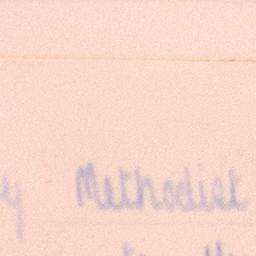 y Methodist